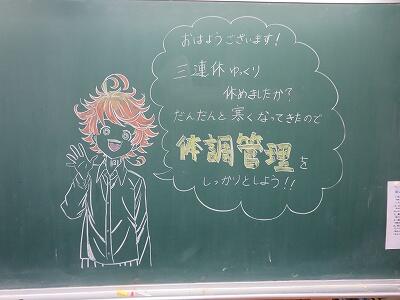 おはようございます!
三連休ゆっくり
休めましたか?
だんだんと寒くなってきたので
体調管理を
しっかりとしよう!!